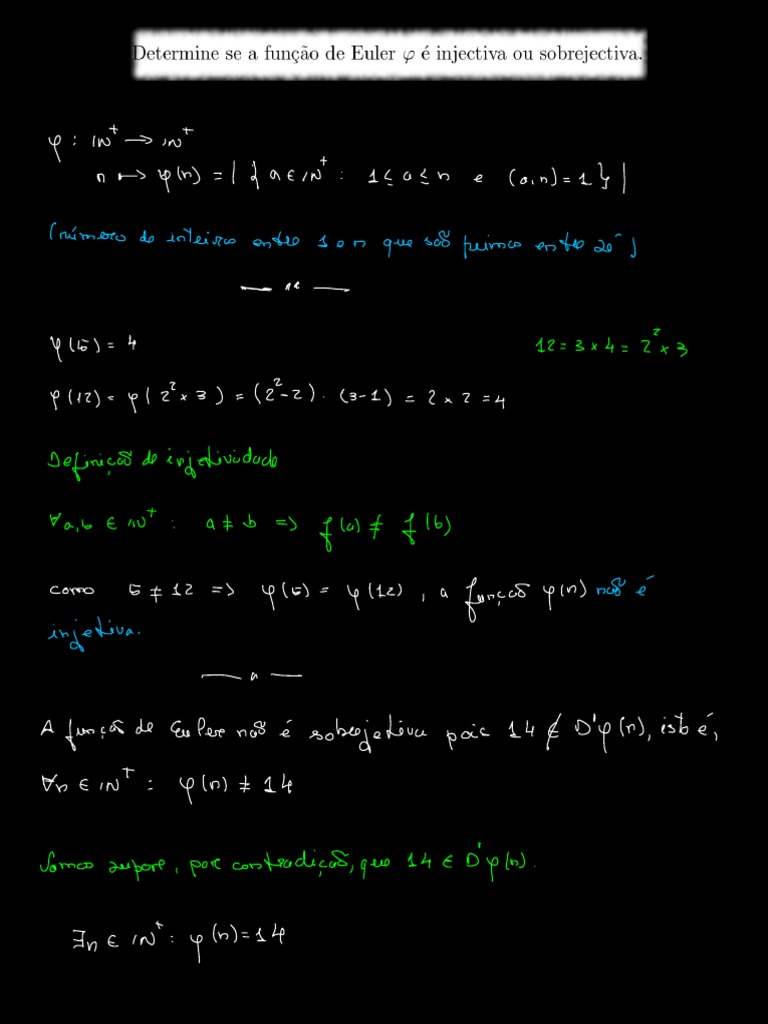 Determine se a função de Euler φ é injectiva ou sobrejectiva.
φ : IN⁺ → IN⁺
n ↦ φ(n) = | { a ∈ IN⁺ : 1 ≤ a ≤ n e (a,n) = 1 } |
(número de inteiros entre 1 e n que são primos entre se)
φ(5) = 4
12 = 3 × 4 = 2² × 3
φ(12) = φ( 2² × 3 ) = (2² - 2) . (3-1) = 2 × 2 = 4
Definição de injetividade
∀a,b ∈ IN⁺ : a ≠ b => f(a) ≠ f(b)
como 5 ≠ 12 => φ(5) = φ(12) , a função φ(n) não é
injetiva.
A função de Euler não é sobrejetiva pois 14 ∉ D'φ(n), isto é,
∀n ∈ IN⁺ : φ(n) ≠ 14
Vamos supor, por contradição, que 14 ∈ D'φ(n).
∃n ∈ IN⁺ : φ(n) = 14